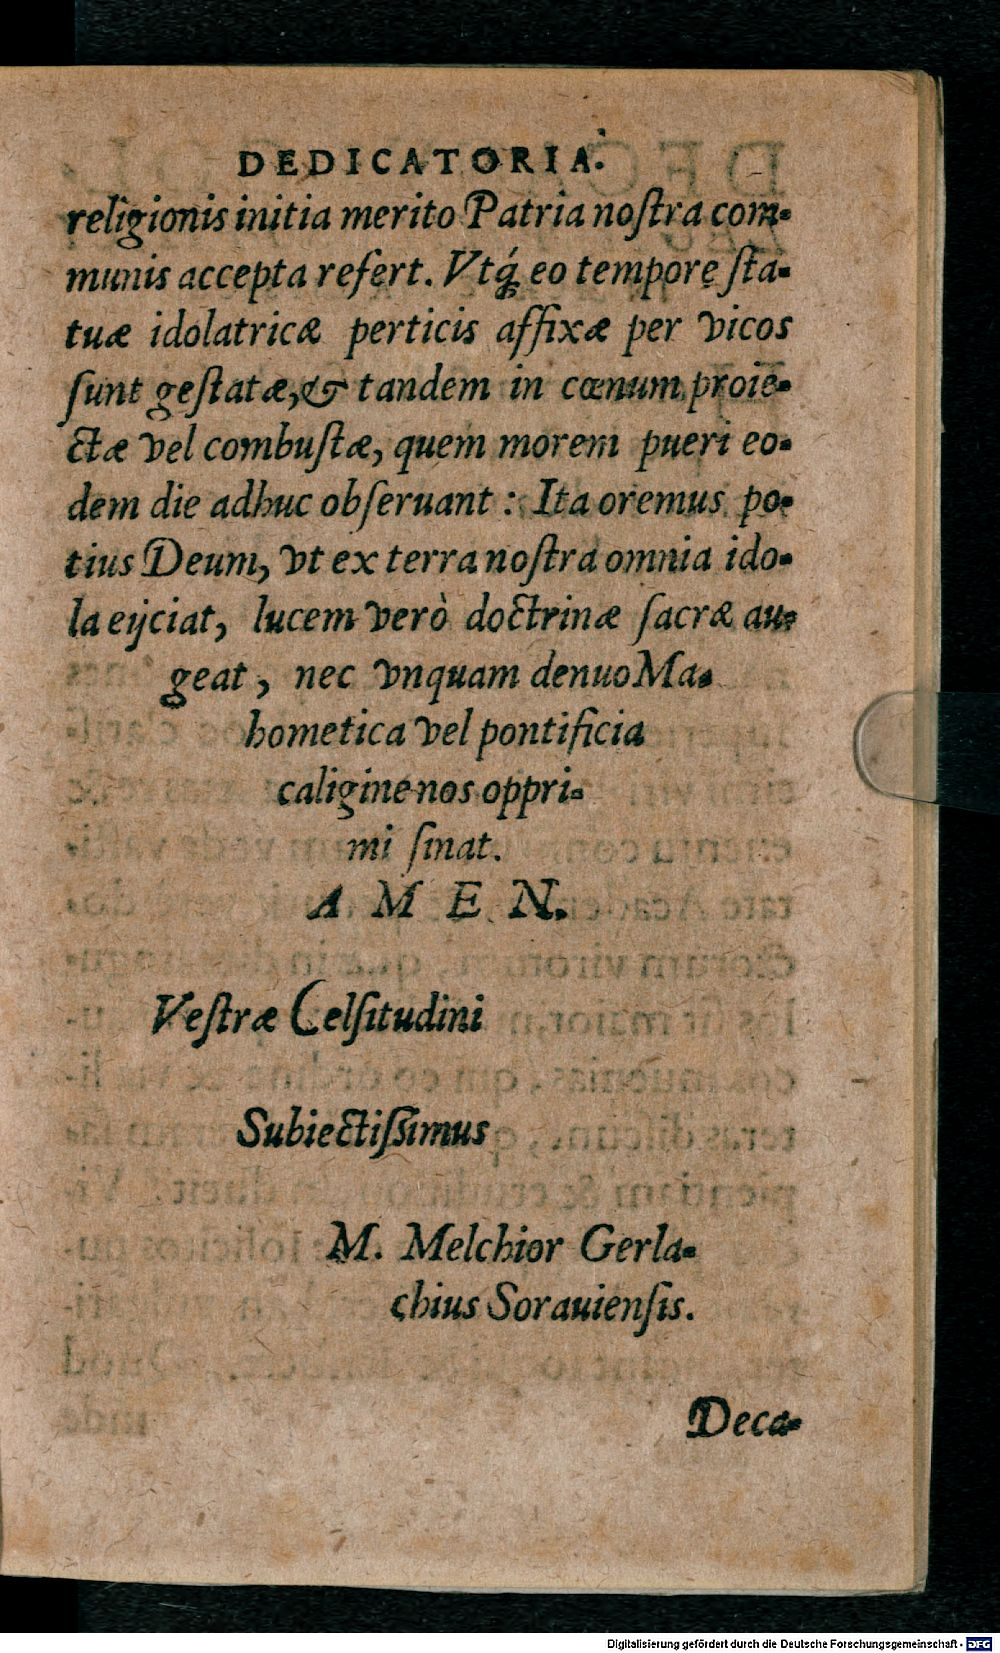 DEDICATORIA.
religionis initia merito Patria noſtra com-
munis accepta refert. Vtq́; eo tempore ſta-
tuæ idolatricæ perticis affixæ per vicos
ſunt geſtatæ, & tandem in cœnum proie-
ctæ vel combuſtæ, quem morem pueri eo-
dem die adhuc obſeruant: Ita oremus po-
tius Deum, vt ex terra noſtra omnia ido-
la eijciat, lucem verò doctrinæ ſacræ au-
geat, nec vnquam denuo Ma-
hometica vel pontificia
caligine nos oppri-
mi ſinat.
AMEN.
Veſtræ Celſitudini
Subiectiſſimus
M. Melchior Gerla-
chius Sorauienſis.
Deca-
Digitalisierung gefördert durch die Deutsche Forschungsgemeinschaft - DFG